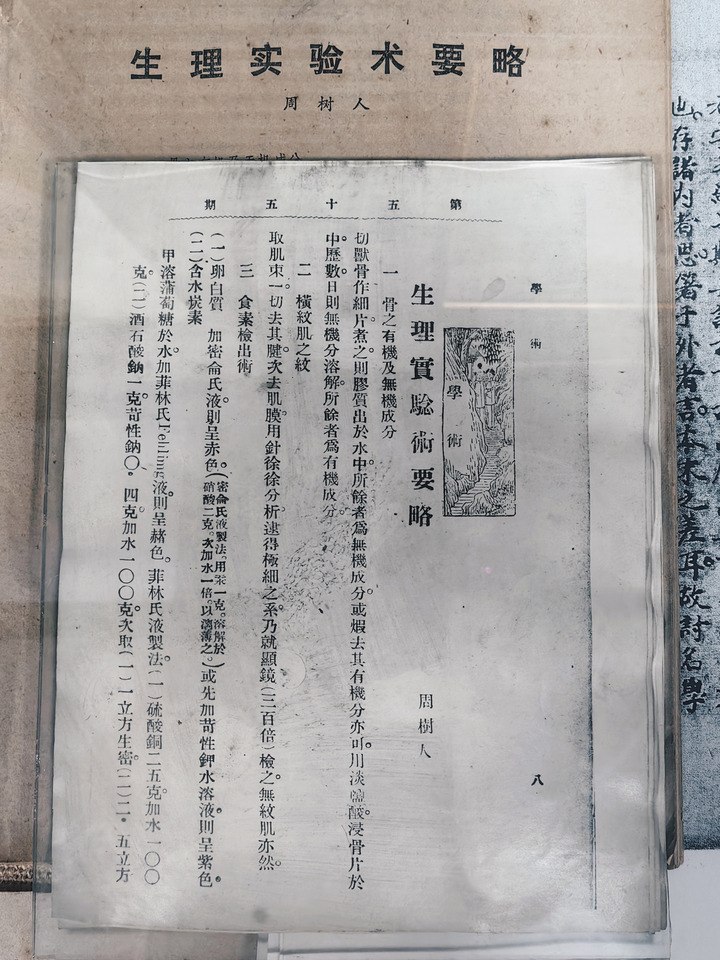 生理实验术要略
周树人
第五十五期
學術
八
學術
生理實騐術要略
周樹人
一　骨之有機及無機成分
切獸骨作細片煮之則膠質出於水中。所餘者爲無機成分。或煅去其有機分亦可。用淡鹽酸浸骨片於
中歷數日則無機分溶解。所餘者爲有機成分。
二　橫紋肌之紋
取肌束一切去其腱。次去肌膜。用針徐徐分析。逮得極細之系乃就顯鏡（三百倍）檢之。無紋肌亦然。
三　食素檢出術
（一）卵白質　加密侖氏液。則呈赤色。（密侖氏液製法。用汞一克。溶解於硝酸二克。次加水一倍。以漓薄之。）或先加苛性鉀水溶液。則呈紫色。
（二）含水炭素
甲溶蒲萄糖於水。加菲林氏Fehling液。則呈赭色。菲林氏液製法（一）硫酸銅二五克。加水一〇〇
克。（二）酒石酸鈉一克。苛性鈉〇・四克加水一〇〇克。次取（一）一立方生密。（二）二・五立方
也。存諸内者思。箸于外者言。本末之差耳。故討名學